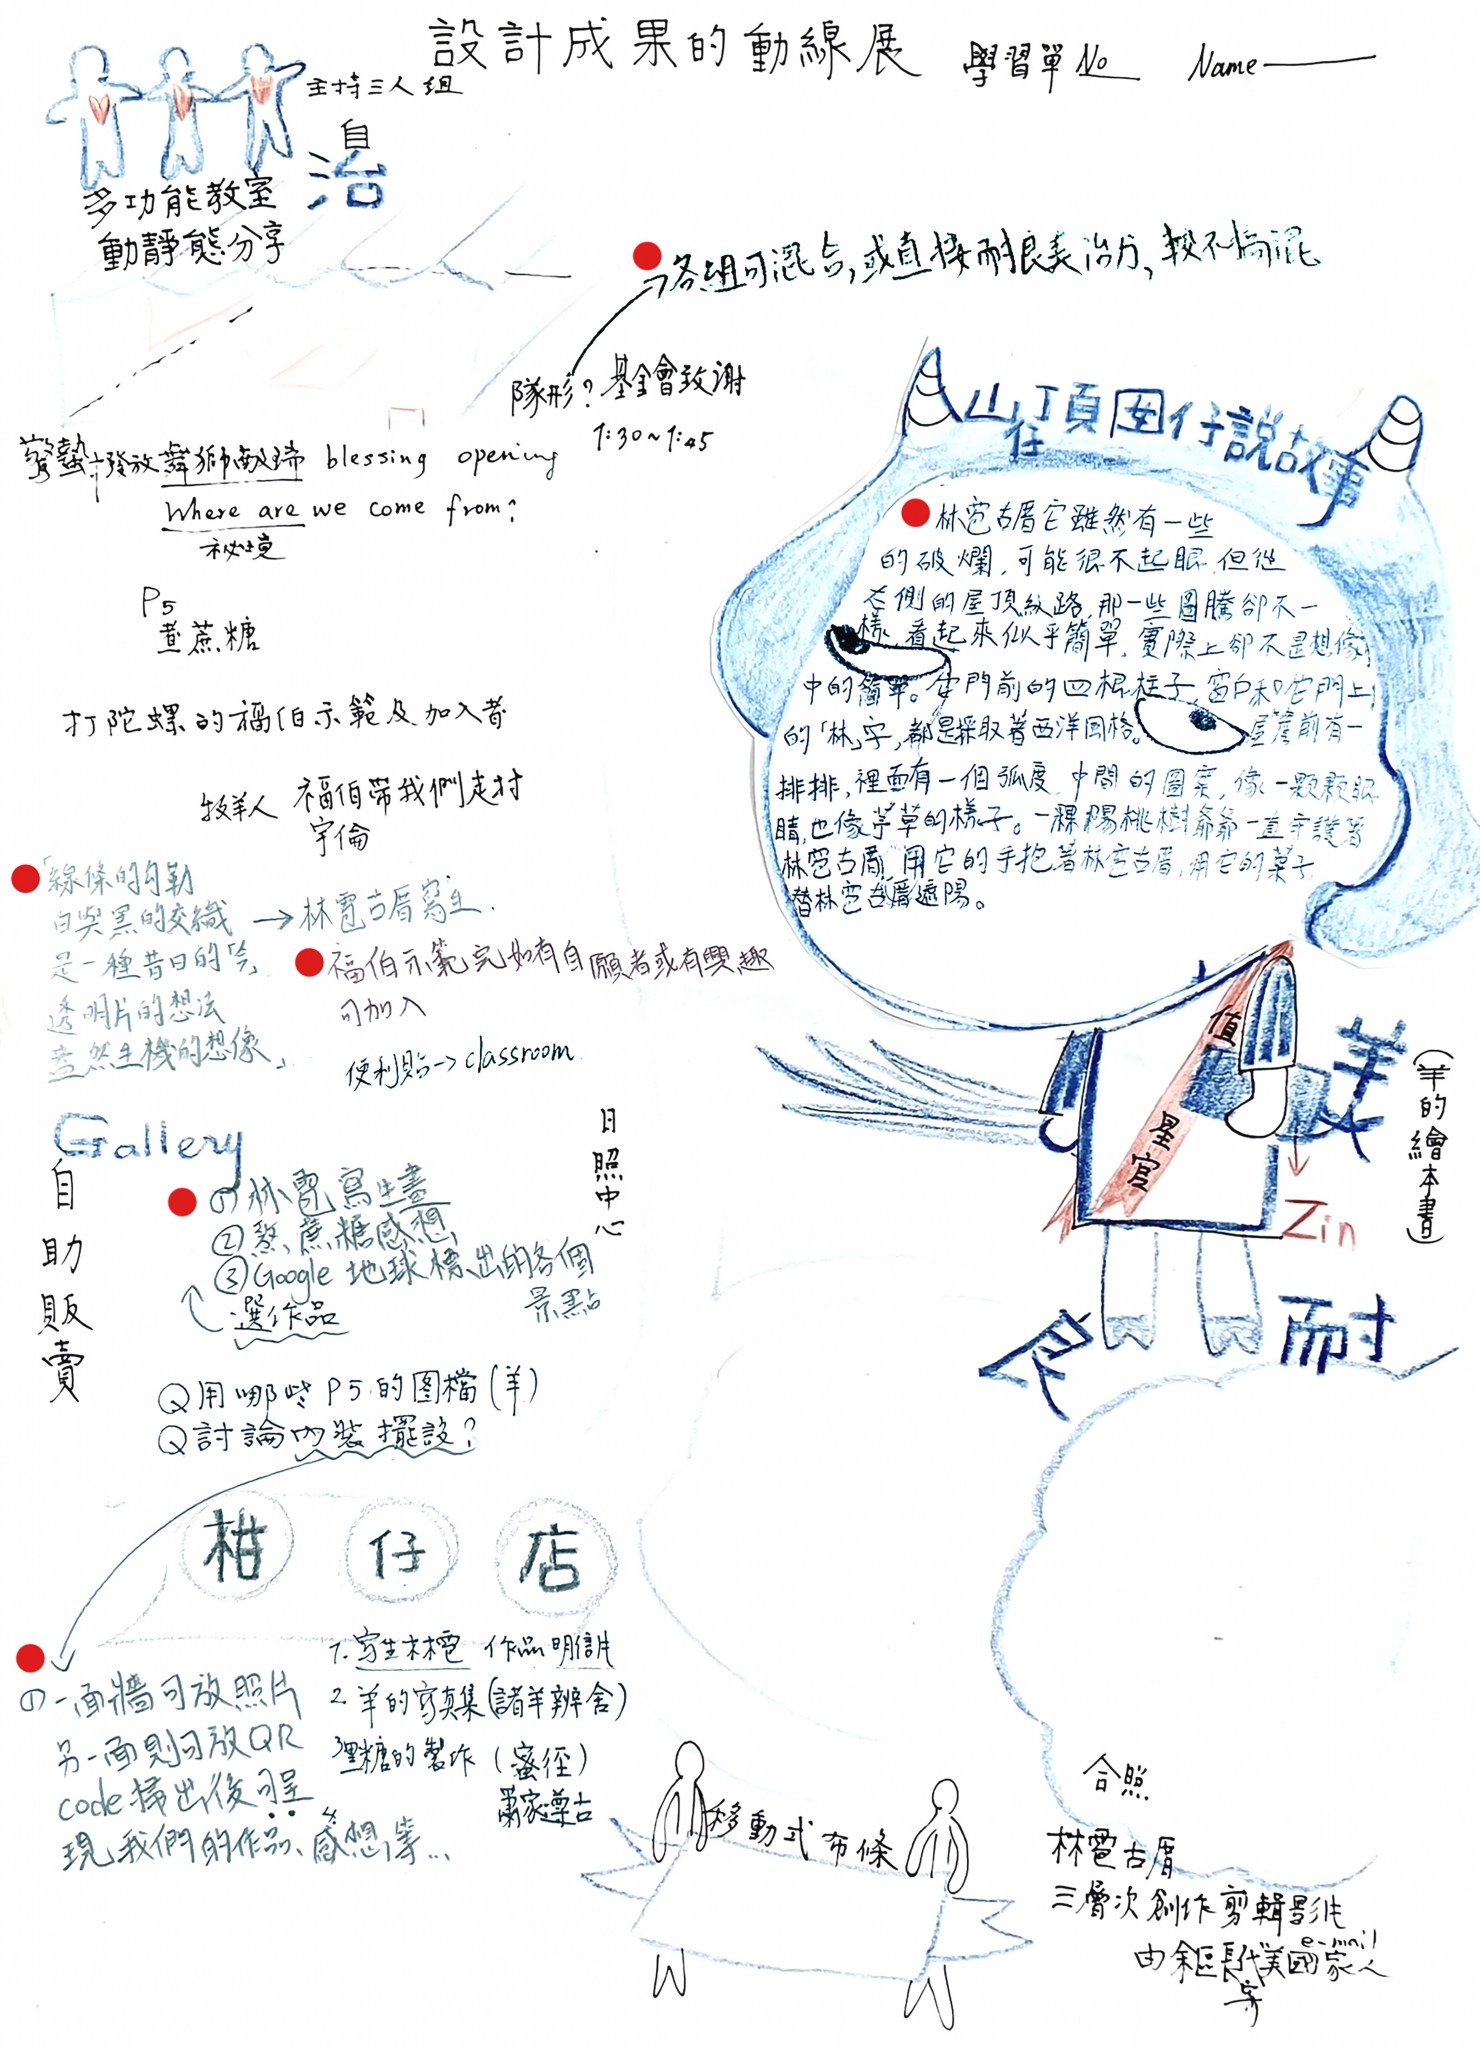 設計成果的動線展 學習單No Name
主持三人組
自
治
多功能教室
動靜態分享
各組可混合,或直接耐良美治分,較不搞混
隊形?基金會致謝
1:30~1:45
驚蟄 發放舞獅獻瑞 blessing opening
Where are we come from?
祕境
P5
煮蔗糖
打陀螺的福伯示範及加入者
牧羊人 福伯帶我們走村
宇倫
「線條的勾勒
白與黑的交織
是一種昔日的
透明片的想法
盎然生機的想像」
→林雹古厝寫生.
福伯示範完如有自願者或有興趣
可加入
便利貼→classroom
山頂囡仔說故事
林雹古厝它雖然有一些
的破爛,可能很不起眼,但從
右側的屋頂紋路,那一些圖騰卻不一
樣,看起來似乎簡單,實際上卻不是想像
中的簡單。在門前的四根柱子,窗戶和它門上
的「林」字,都是採取著西洋風格。屋簷前有一
排排,裡面有一個弧度,中間的圖案,像一顆顆眼
睛,也像芋草的樣子。一棵楊桃樹爺爺一直守護著
林雹古厝,用它的手抱著林雹古厝,用它的葉子
替林雹古厝遮陽。
值
星官
美
(羊的繪本書)
Zin
耐
良
Gallery
自助販賣
日照中心
①林雹寫生畫
②熬蔗糖感想
③Google 地球標出的各個
景點
選作品
Q用哪些P5的图檔(羊)
Q討論內裝擺設?
柑仔店
①一面牆可放照片
另一面則可放QR
code掃出後可呈
現我們的作品、感想等...
1. 寫生林雹 作品明信片
2. 羊的寫真集(諸羊辨舍)
3黑糖的製作 (蜜徑)
蕭家蹲古
移動式布條
合照
林雹古厝
三層次創作剪輯影片
e-mail
由余區長代美國家人
寄